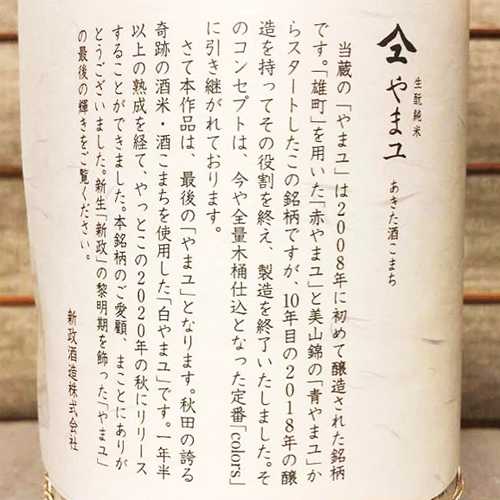 生酛純米
やまユ あきた酒こまち
当蔵の「やまユ」は2008年に初めて醸造された銘柄
です。「雄町」を用いた「赤やまユ」と美山錦の「青やまユ」か
らスタートしたこの銘柄ですが、10年目の2018年の醸
造を持ってその役割を終え、製造を終了いたしました。そ
のコンセプトは、今や全量木桶仕込となった定番「colors」
に引き継がれております。
さて本作品は、最後の「やまユ」となります。秋田の誇る
奇跡の酒米・酒こまちを使用した「白やまユ」です。一年半
以上の熟成を経て、やっとこの2020年の秋にリリース
することができました。本銘柄のご愛顧、まことにありが
とうございました。新生「新政」の黎明期を飾った「やまユ」
の最後の輝きをご覧ください。
新政酒造株式会社